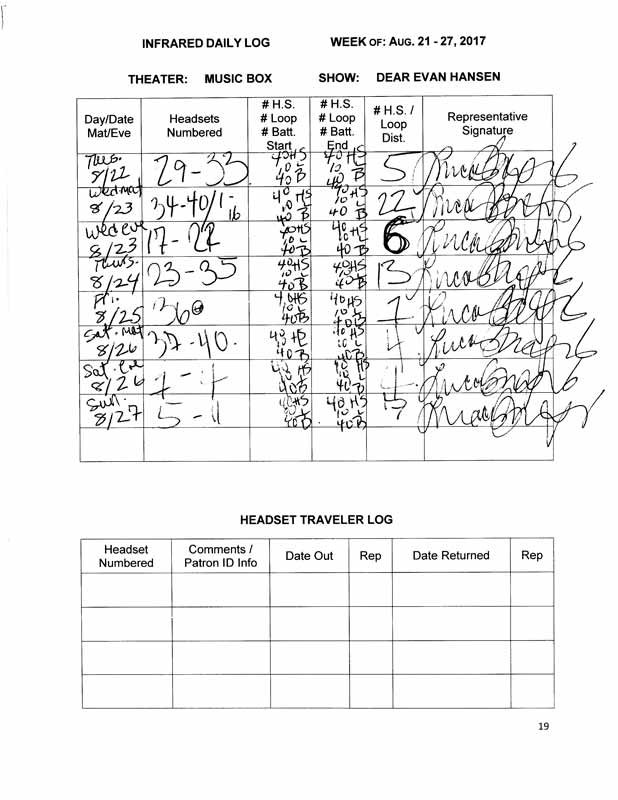 INFRARED DAILY LOG WEEK OF: AUG. 21 - 27, 2017
THEATER: MUSIC BOX SHOW: DEAR EVAN HANSEN
Day/Date Mat/Eve Headsets Numbered # H.S. # Loop # Batt. Start # H.S. # Loop # Batt. End # H.S. / Loop Dist. Representative Signature
Tues. 8/22 29-33 40HS 10L 40B 40HS 10L 40B 5
Wed mat 8/23 34-40/1-16 40HS 10L 40B 40HS 10L 40B 22
Wed eve 8/23 17-22 40HS 10L 40B 40HS 10L 40B 6
Thurs. 8/24 23-35 40HS 10L 40B 40HS 10L 40B 13
Fri. 8/25 36 40HS 10L 40B 40HS 10L 40B 1
Sat. mat 8/26 37-40. 40HS 10L 40B 40HS 10L 40B 4
Sat. Eve 8/26 1-4 40HS 10L 40B 40HS 10L 40B 4
Sun. 8/27 5-11 40HS 10L 40B 40HS 10L 40B 7
HEADSET TRAVELER LOG
Headset Numbered Comments / Patron ID Info Date Out Rep Date Returned Rep
19